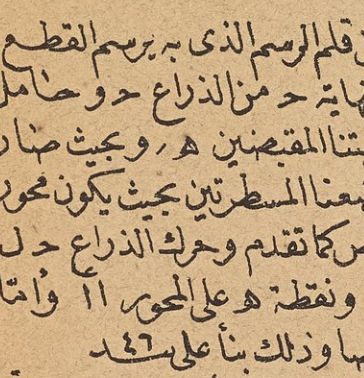 قلم الرسم الذى به يرسم القطع
حـ من الذراع حـ و حامل
المقبضين هـ ر وبحيث صار
المسطرتين بحيث يكون محور
كما تقدم وحرك الذراع حـ ل
ونقطة هـ على المحور اا وأما
وذلك بنأ على سـد ٤٦